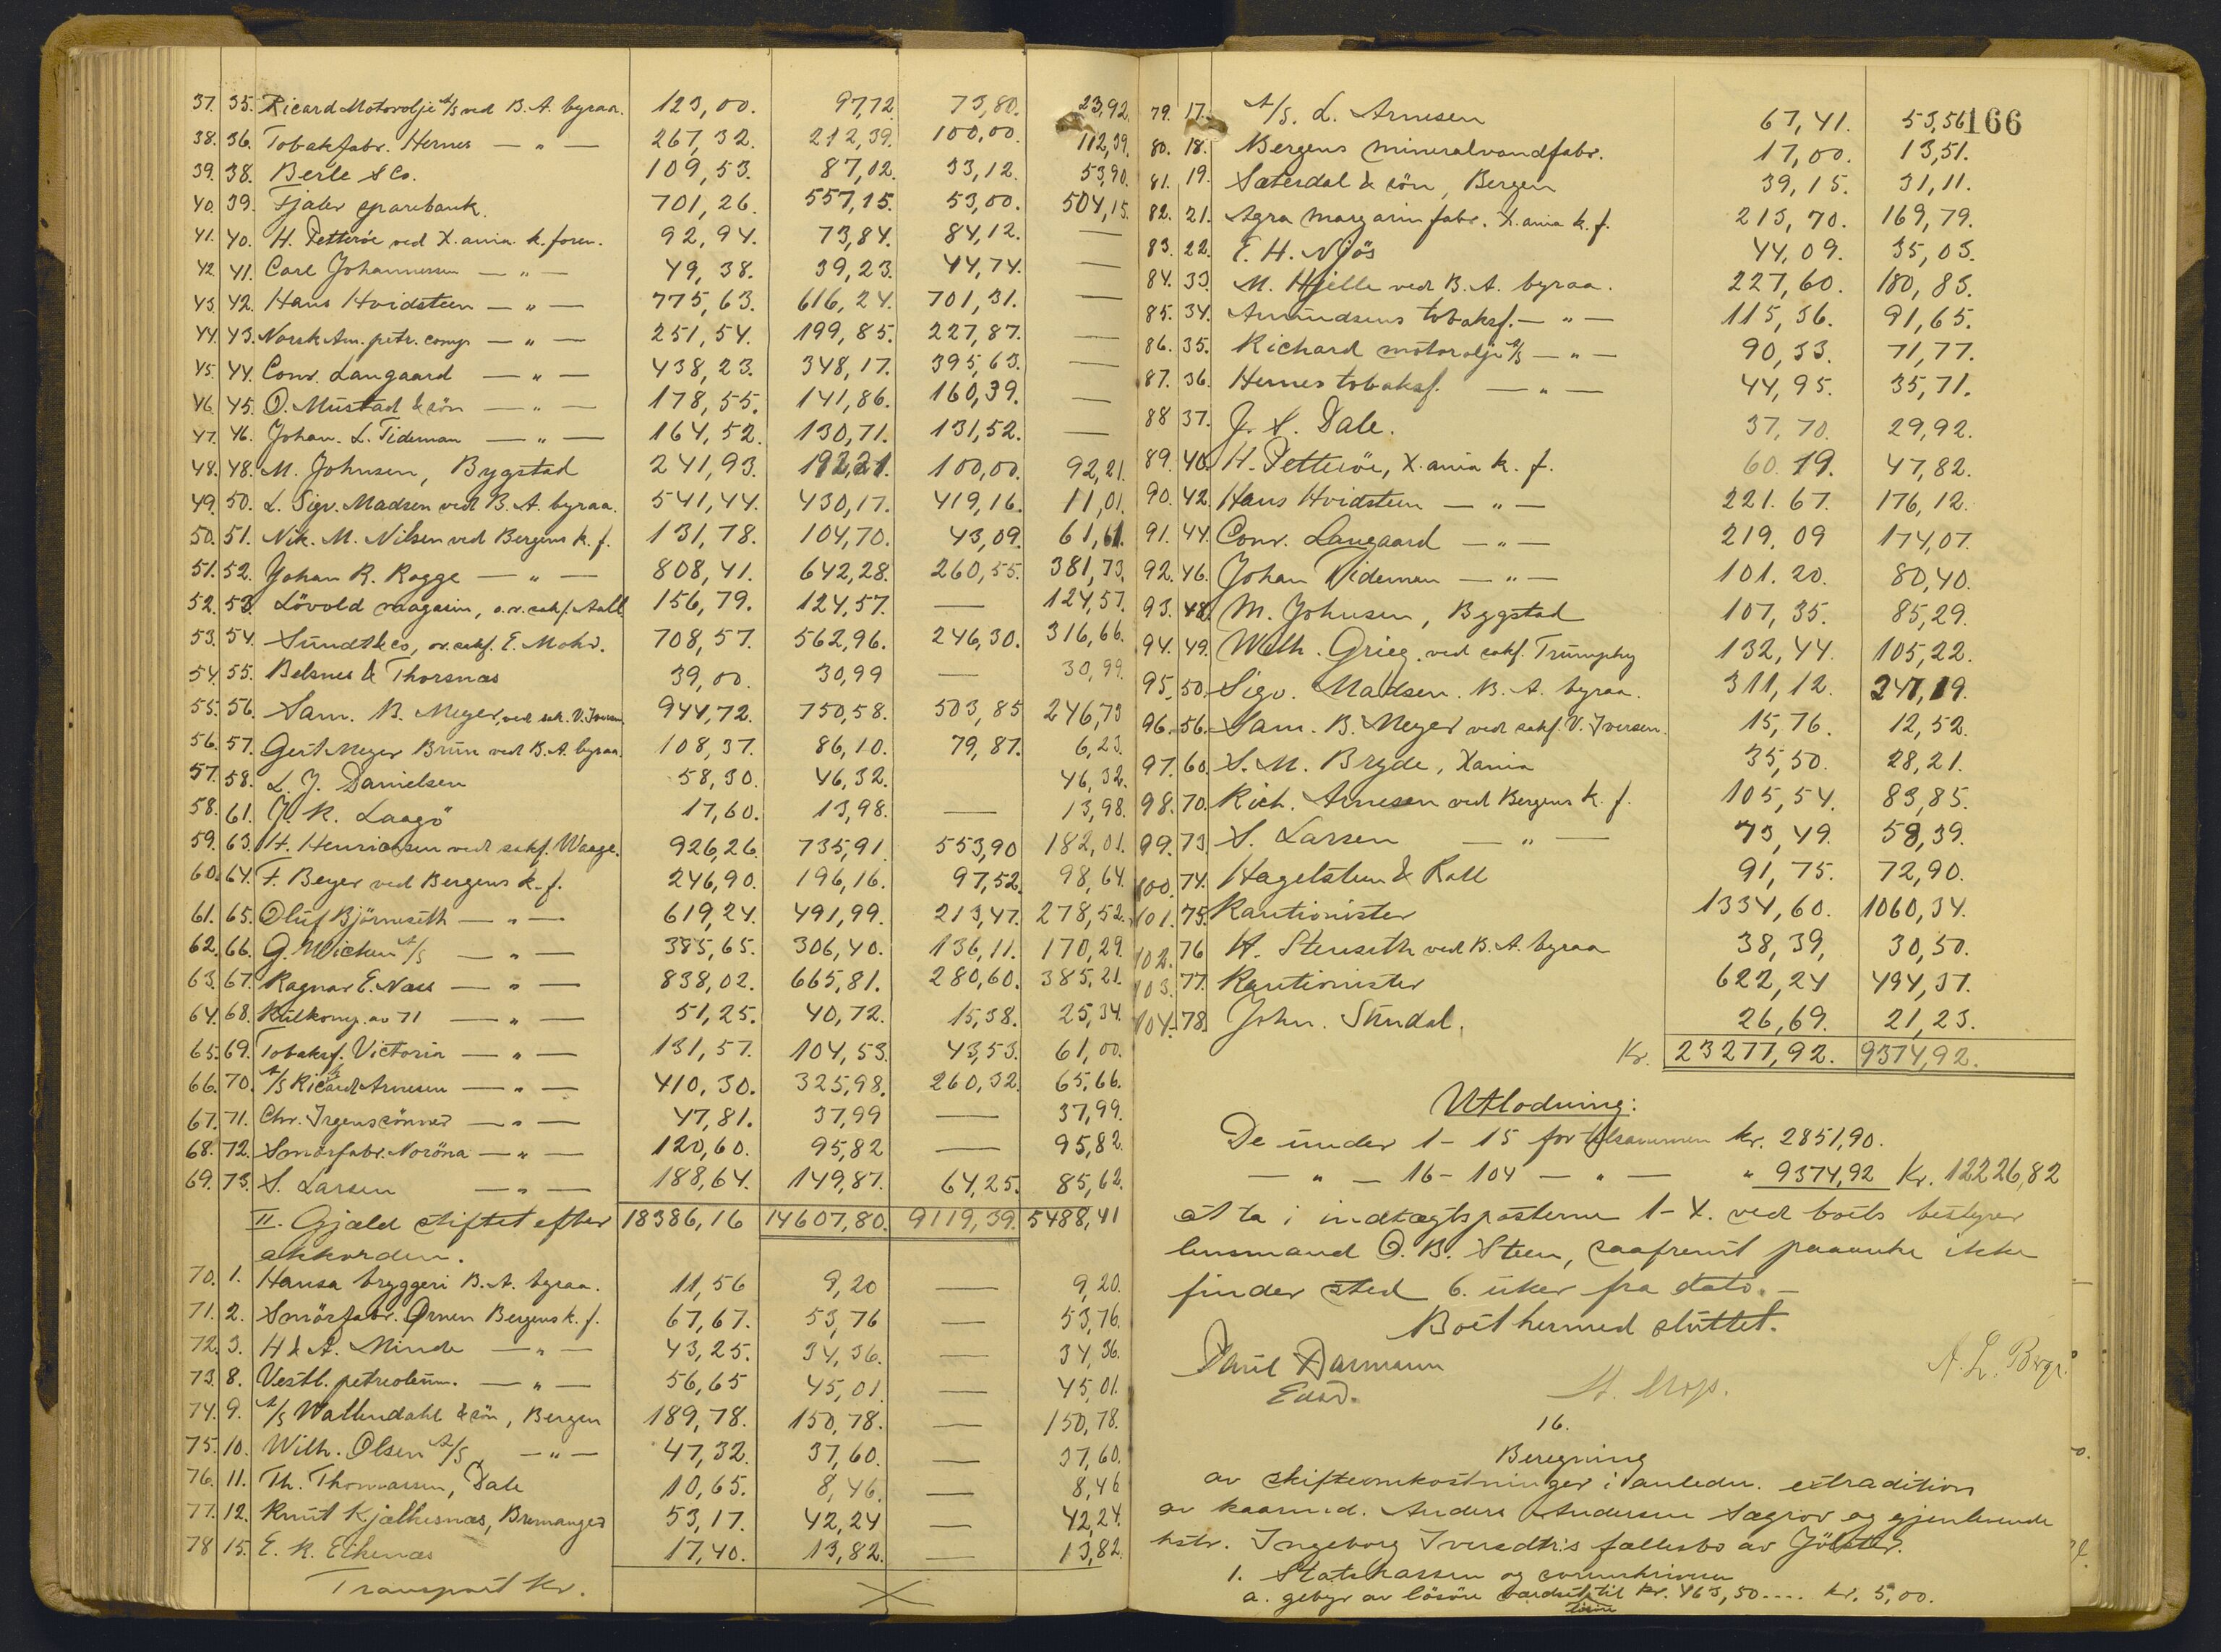 37. 35. Ricard Motorolje A/S ved B. A. byraa. 123,00. 97,72 73,80. 23,92.
38. 36. Tobakfabr. Hernes — " — 267,32. 212,39. 100,00. 112,39.
39. 38. Berle & Co. 109,53. 87,02. 33,12. 53,90.
40. 39. Fjaler sparebank. 701,26. 557,15. 53,00. 504,15.
41. 40. H. Petteröe ved X.ania k. foren. 92,94. 73,84. 84,12. —
42. 41. Carl Johannessen — " — 49,38. 39,23. 44,74. —
43. 42. Hans Hvidsteen — " — 775,63. 616,24. 701,31. —
44. 43. Norsk Am. petr. comp. — " — 251,54. 199,85. 227,87. —
45. 44. Conr. Langaard — " — 438,23. 348,17. 395,63. —
46. 45. O. Mustad & sön — " — 178,55. 141,86. 160,39. —
47. 46. Johan. L. Tideman — " — 164,52. 130,71. 131,52. —
48. 48. M. Johnsen, Bygstad 241,93. 192,21. 100,00. 92,21.
49. 50. L. Sigv. Madsen ved B. A. byraa. 541,44. 430,17. 419,16. 11,01.
50. 51. Nik. M. Nilsen ved Bergens k. f. 131,78. 104,70. 43,09. 61,61.
51. 52. Johan R. Rogge — " — 808,41. 642,28. 260,55. 381,73.
52. 53. Lövold magasin, o.r.sakf. Aall 156,79. 124,57. — 124,57.
53. 54. Sundt & Co, or.sakf. E. Mohr. 708,57. 562,96. 246,30. 316,66.
54. 55. Belsnes & Thorsnæs 39,00. 30,99 — 30,99.
55. 56. Sam. B. Meyer, ved sak. V. Iversen 944,72. 750,58. 503,85 246,73
56. 57. Gert Meyer Brun ved B. A. byraa. 108,37. 86,10. 79,87. 6,23.
57. 58. L. J. Danielsen 58,30. 46,32. 46,32.
58. 61. J. K. Laagö 17,60. 13,98. — 13,98.
59. 63. H. Henricksen ved sakf. Waage. 926,26. 735,91. 553,90 182,01.
60. 64. F. Beyer ved Bergens k. f. 246,90. 196,16. 97,52. 98,64.
61. 65. Oluf Björneseth — " — 619,24. 491,99. 213,47. 278,52.
62. 66. G. Wicken A/S — " — 385,65. 306,40. 136,11. 170,29.
63. 67. Ragnar E. Næss — " — 838,02. 665,81. 280,60. 385,21.
64. 68. Kulkomp. av 71 — " — 51,25. 40,72. 15,38. 25,34.
65. 69. Tobaksf. Victoria — " — 131,57. 104,53. 43,53. 61,00.
66. 70. A/S Richard Arnesen — " — 410,30. 325,98. 260,32. 65,66.
67. 71. Chr. Irgens sönner — " — 47,81. 37,99 — 37,99.
68. 72. Smörfabr. Noröna — " — 120,60. 95,82 — 95,82.
69. 73. S. Larsen — " — 188,64. 149,87. 64,25. 85,62.
II. Gjæld stiftet efter 18386,16 14607,80. 9119,39. 5488,41
akkorden.
70. 1. Hansa bryggeri B. A. byraa. 11,56 9,20 — 9,20.
71. 2. Smörfabr. Ørnen Bergens k. f. 67,67. 53,76 — 53,76.
72. 3. H & A. Minde — " — 43,25. 34,36. — 34,36.
73. 8. Vestl. petroleum. — " — 56,65 45,01. — 45,01.
74. 9. A/S Wallendahl & sön, Bergen 189,78. 150,78. — 150,78.
75. 10. Wilh. Olsen A/S — " — 47,32. 37,60. — 37,60.
76. 11. Th. Thomassen, Dale 10,65. 8,46. — 8,46
77. 12. Knut Kjølkesnæs, Bremanger 53,17. 42,24 — 42,24.
78 15. E. K. Eikenæs 17,40. 13,82. — 13,82.
Transport Kr.
166
79. 17. A/S. L. Arnesen 67,41. 53,56.
80. 18. Bergens mineralvandfabr. 17,00. 13,51.
81. 19. Sætesdal & sön, Bergen 39,15. 31,11.
82. 21. Agra margarinfabr. X.ania k. f. 213,70. 169,79.
83. 22. E. H. Njös 44,09. 35,03.
84. 33. M. Hjelle ved B. A. byraa. 227,60. 180,83.
85. 34. Amundsens tobaksf. — " — 115,36. 91,65.
86. 35. Richard motorolje A/S — " — 90,33. 71,77.
87. 36. Hernes tobaksf. — " — 44,95. 35,71.
88 37. J. S. Dale. 37,70. 29,92.
89. 40. H. Petteröe, X.ania k. f. 60.19. 47,82.
90. 42. Hans Hvidsteen — " — 221.67. 176,12.
91. 44. Conr. Langaard — " — 219,09 174,07.
92. 46. Johan Tideman — " — 101.20. 80,40.
93. 48. M. Johnsen, Bygstad 107,35. 85,29.
94. 49. Wilh. Grieg. ved sakf. Trumphy 132,44. 105,22.
95. 50. Sigv. Madsen. B. A. byraa. 311,12. 247,19.
96. 56. Sam. B. Meyer ved sakf. V. Iversen. 15,76. 12,52.
97. 60. S. M. Bryde, Xania 35,50. 28,21.
98. 70. Rich. Arnesen ved Bergens k. f. 105,54. 83,85.
99. 73. S. Larsen — " — 73,49. 58,39.
100. 74. Hagelsteen & Roll 91,75. 72,90.
101. 75. Kautionister 1334,60. 1060,34.
102. 76 H. Stenseth ved B. A. byraa 38,39, 30,50.
103. 77. Kautionister 622,24 494,37.
104. 78. John. Sundal. 26,69. 21,23.
Kr. 23277,92. 9374,92.
Utlodning:
De under 1 - 15 for tilsammen kr. 2851,90.
— " — 16 - 104 — " — " 9374,92 Kr. 12226,82
at ta i indtægtsposterne 1-X. ved boets bestyrer
lensmand O. B. Steen, saafremt paaanke ikke
finder sted 6. uker fra dato. —
Boet hermed sluttet.
Edvd.
16.
Beregning
av skifteomkostninger i anledn. extradition
av kaarmd. Anders Andersen Sægrov og gjenlevende
hstr. Ingeborg Iversdtr's fællesbo av Jölster.
1. Statskassen og sorenskriveren
a. gebyr av lösöre værdsat til kr. 463,50.... kr. 5,00.
lösöre